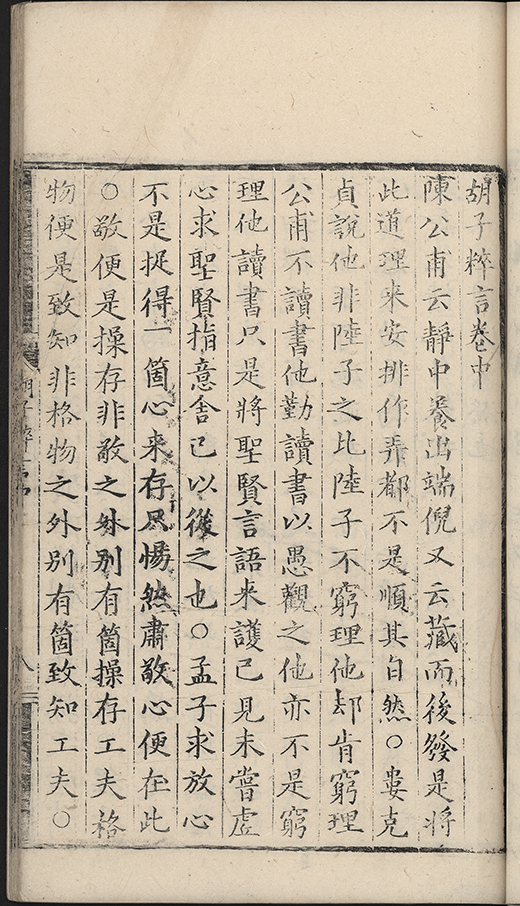 胡子粹言卷中
陳公甫云靜中養出端倪又云藏而後發是將
此道理来安排作弄都不是順其自然○婁克
貞說他非陸子之比陸子不窮理他却肯窮理
公甫不讀書他勤讀書以愚觀之他亦不是窮
理他讀書只是將聖賢言語来護己見未嘗虚
心求聖賢指意舎己以從之也○孟子求放心
不是捉得一箇心来存只惕然肅敬心便在此
○敬便是操存非敬之外别有箇操存工夫格
物便是致知非格物之外别有箇致知工夫○
胡子粹言